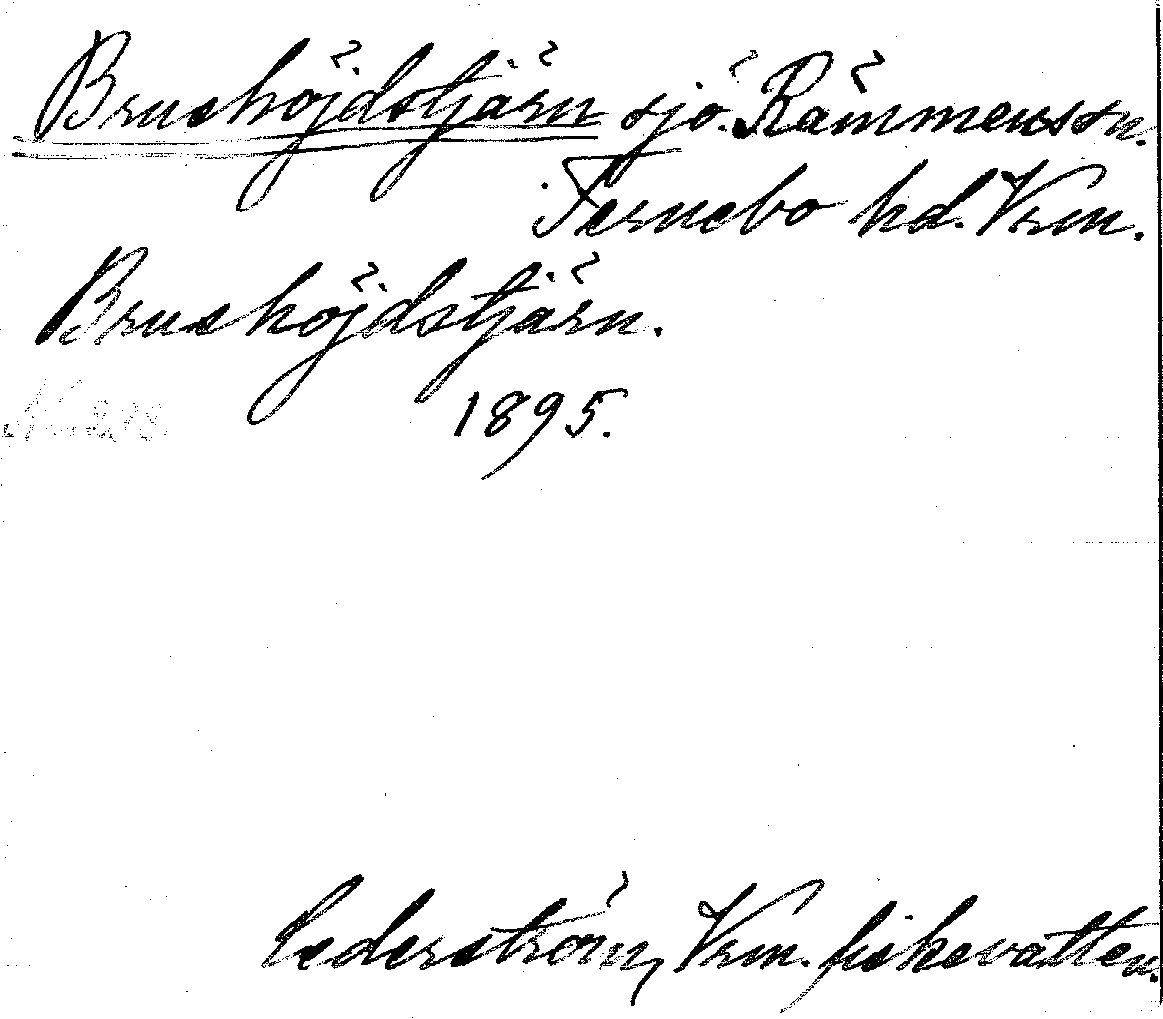 Brushöjdstjärn sjö. Rämmens sn.
Fernebo hd. Vrm.
Brushöjdstjärn.
1895.
Cederström, Vrm. fiskevatten.